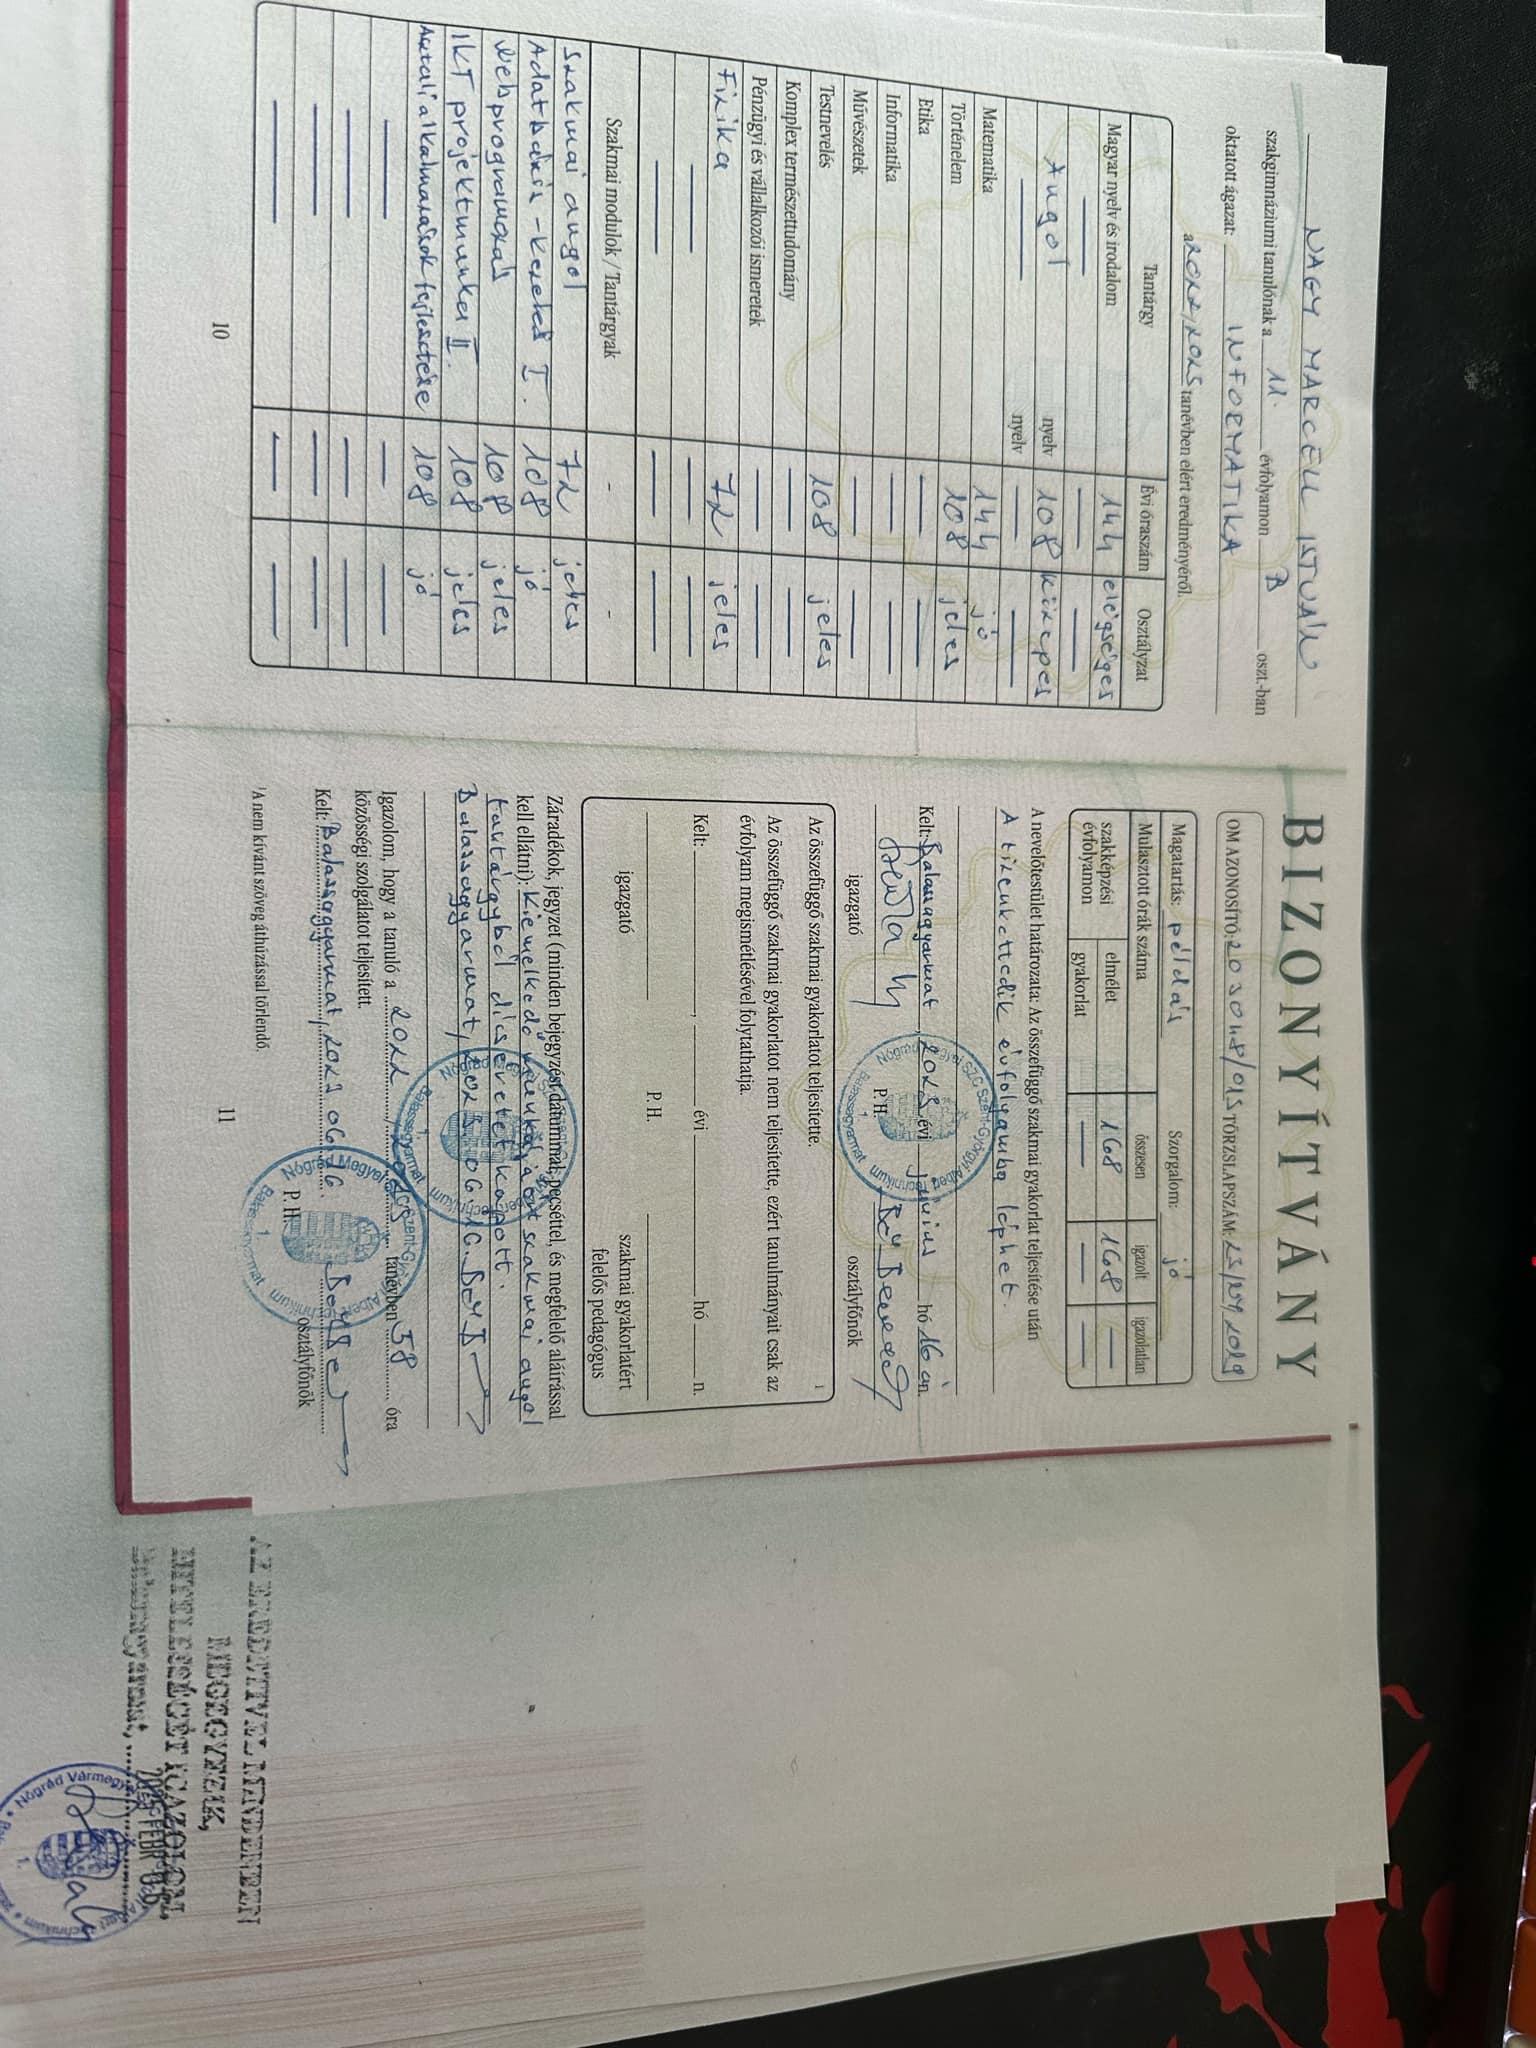 NAGY MARCELL ISTVÁN
szakgimnáziumi tanulónak a 11. évfolyamon B oszt.-ban
oktatott ágazat: INFORMATIKA
a 2022/2023 tanévben elért eredményéről.
Tantárgy Évi óraszám Osztályzat
Magyar nyelv és irodalom 144 elégséges
— — —
Angol nyelv 108 közepes
— nyelv — —
Matematika 144 jó
Történelem 108 jeles
Etika — —
Informatika — —
Művészetek — —
Testnevelés 108 jeles
Komplex természettudomány — —
Pénzügyi és vállalkozói ismeretek — —
Fizika 72 jeles
— — —
— — —
Szakmai modulok / Tantárgyak - -
Szakmai angol 72 jeles
Adatbázis-kezelés I. 108 jó
Webprogramozás 108 jeles
IKT projektmunka II. 108 jeles
Asztali alkalmazások fejlesztése 108 jó
— — —
— — —
— — —
— — —
10
BIZONYÍTVÁNY
OM AZONOSÍTÓ: TÖRZSLAPSZÁM:
Magatartás: példás Szorgalom: jó
Mulasztott órák száma összesen igazolt igazolatlan
szakképzési évfolyamon elmélet 168 168 —
gyakorlat — — —
A nevelőtestület határozata: Az összefüggő szakmai gyakorlat teljesítése után
A tizenkettedik évfolyamba léphet.
Kelt: Balassagyarmat, 2023 évi június hó 16 án.
igazgató P. H. osztályfőnök
Az összefüggő szakmai gyakorlatot teljesítette.
Az összefüggő szakmai gyakorlatot nem teljesítette, ezért tanulmányait csak az
évfolyam megismétlésével folytathatja. 1
Kelt: , évi hó n.
igazgató P. H. szakmai gyakorlatért
felelős pedagógus
Záradékok, jegyzet (minden bejegyzést dátummal, pecséttel, és megfelelő aláírással
kell ellátni): Kiemelkedő munkájáért szakmai angol
tantárgyból dicséretet kapott.
Balassagyarmat, 2023 06 16.
Igazolom, hogy a tanuló a 2022/2023 tanévben 58 óra
közösségi szolgálatot teljesített.
Kelt: Balassagyarmat, 2023 06 16.
P. H. osztályfőnök
¹A nem kívánt szöveg áthúzással törlendő.
11
AZ EREDETIVEL MINDENBEN
MEGEGYEZIK,
HITELESSÉGÉT IGAZOLOM.
Balassagyarmat,